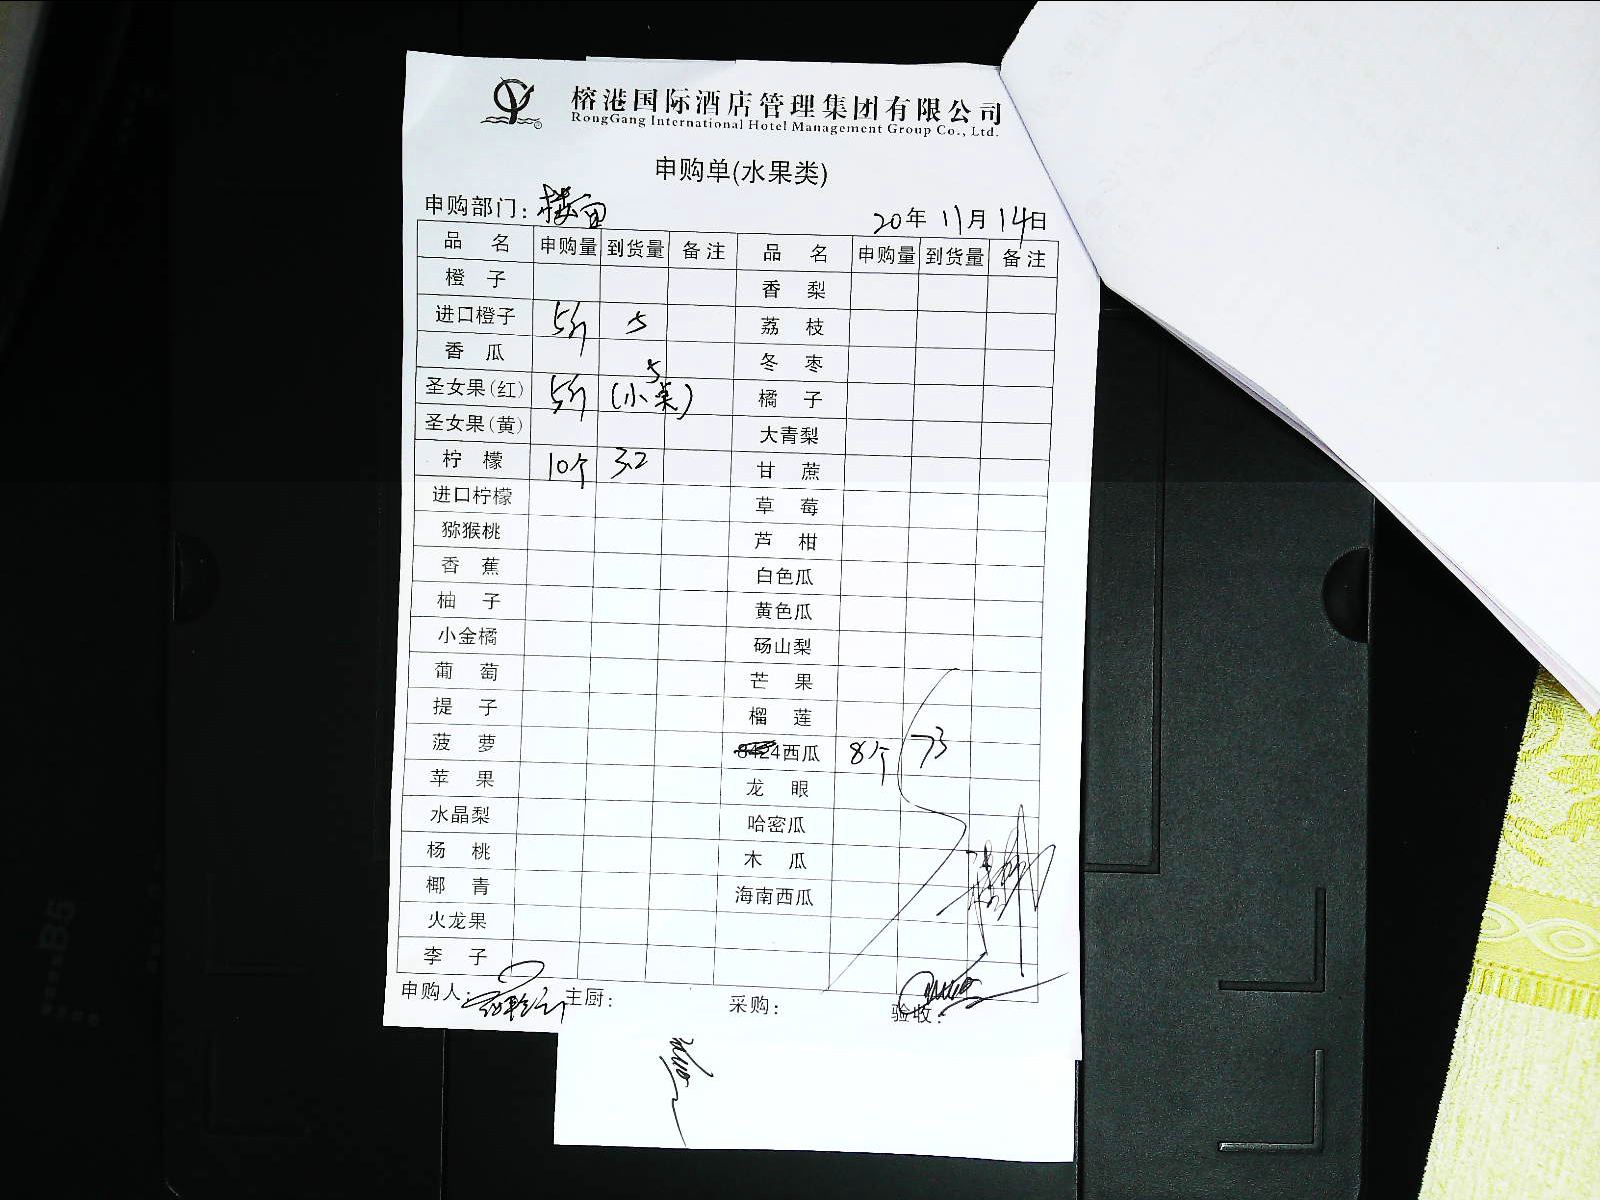 榕港国际酒店管理集团有限公司
RongGang International Hotel Management Group Co., Ltd.
申购单(水果类)
申购部门: 楼面 20年 11月 14日
品名 申购量 到货量 备注 品名 申购量 到货量 备注
橙子 香梨
进口橙子 5斤 5 荔枝
香瓜 冬枣
圣女果(红) 5斤 5 (小果) 橘子
圣女果(黄) 大青梨
柠檬 10个 3.2 甘蔗
进口柠檬 草莓
猕猴桃 芦柑
香蕉 白色瓜
柚子 黄色瓜
小金橘 砀山梨
葡萄 芒果
提子 榴莲
菠萝 8424西瓜 8个 73
苹果 龙眼
水晶梨 哈密瓜
杨桃 木瓜
椰青 海南西瓜
火龙果
李子
申购人: 主厨: 采购: 验收: